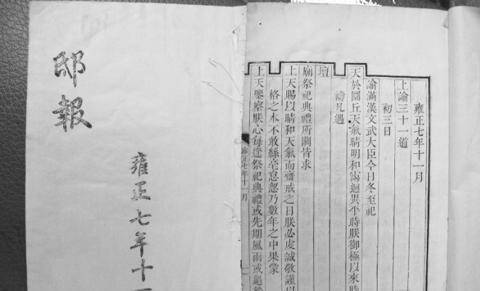 邸報
雍正七年十一
雍正七年十一月
上諭三十一道
初三日
諭滿漢文武大臣今日冬至祀
天於圜丘天氣晴明和靄迥異平時朕御極以來時
凡遇
壇
廟祭祀典禮所關皆求
上天賜以晴和天氣而齋戒之日朕必虔誠敬謹以
格之 不敢絲毫怠忽乃數年之中果蒙
上天鑒察朕心每逢祭祀典禮或先期風雨或
年十一月